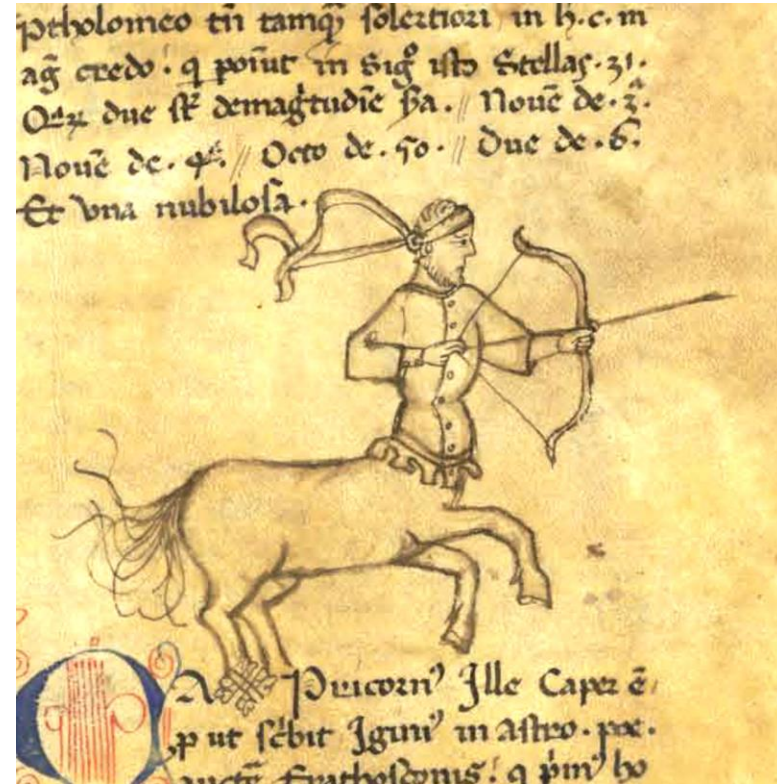 ptholomeo tñ tamqꝫ solertiori in h.c.m
ag̃ credo. q poñut in Sigº isto Stellas. 31.
Qꝝ due st̃ de mag̃tudĩe p̃a. // Nouẽ de. 3ª.
Nouẽ de. 4ª. // Octo de. 5ª. // Due de. 6ª.
Et vna nubilosa.
CApricornꝰ Ille Caper ẽ
ut sc̃bit Iginꝰ in astro. poe.
auctẽ Erathostenis. q p̃mꝰ ho